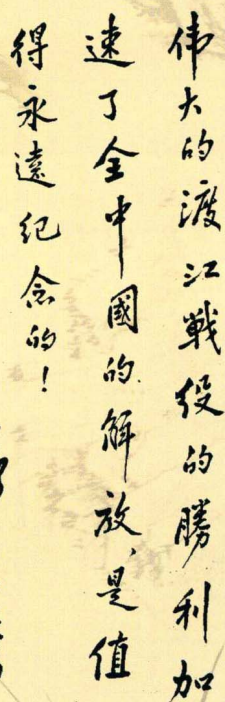 伟大的渡江戰役的勝利加
速了全中國的解放、是值
得永遠纪念的！